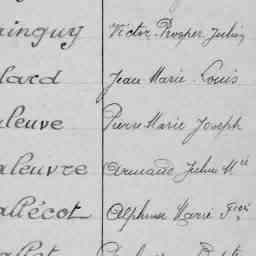 inguy Victor Prosper Julien
lard Jean Marie Louis
leuve Pierre Marie Joseph
leuvre Armand Julien Mie
allécot Alphonse Marie Fçois